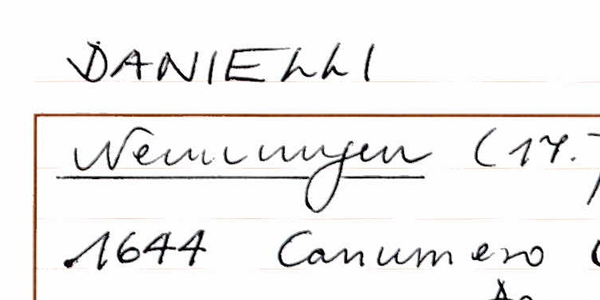 DANIELLI
Nennungen (17.
1644 Canumero